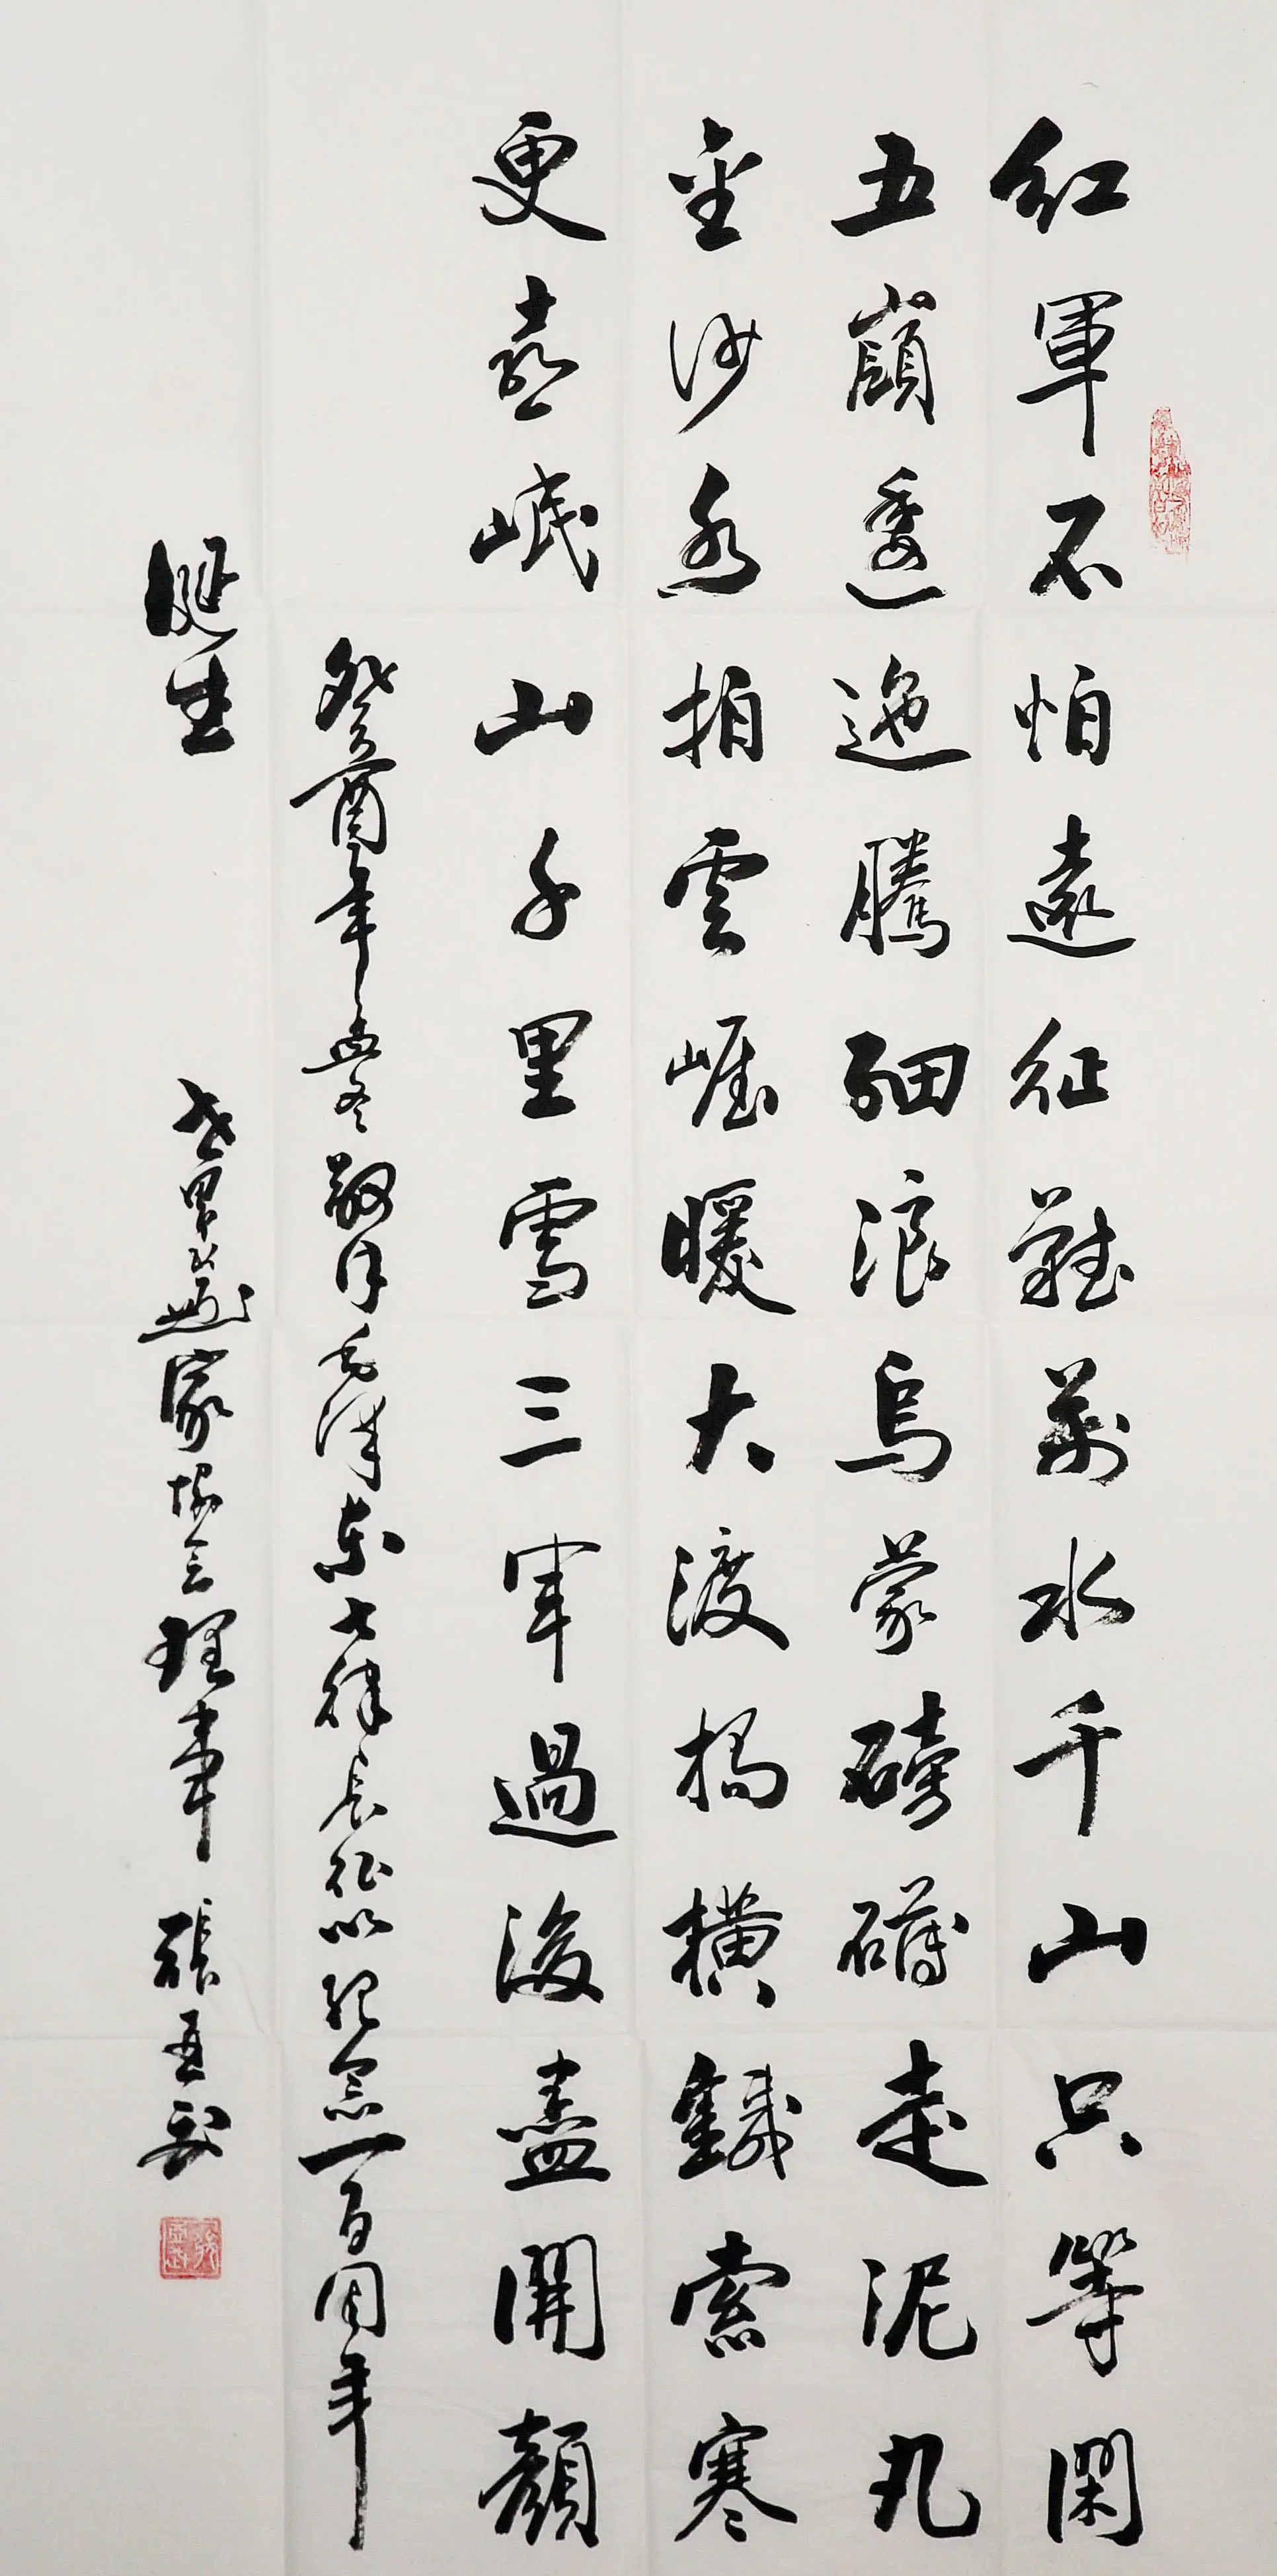 紅軍不怕遠征難萬水千山只等閑
五嶺逶迤騰細浪烏蒙磅礴走泥丸
金沙水拍雲崖暖大渡橋橫鐵索寒
更喜岷山千里雪三軍過後盡開顏
癸酉年孟冬敬书毛澤東七律長征以紀念一百周年
誕生 世界书畫家協会理事 張